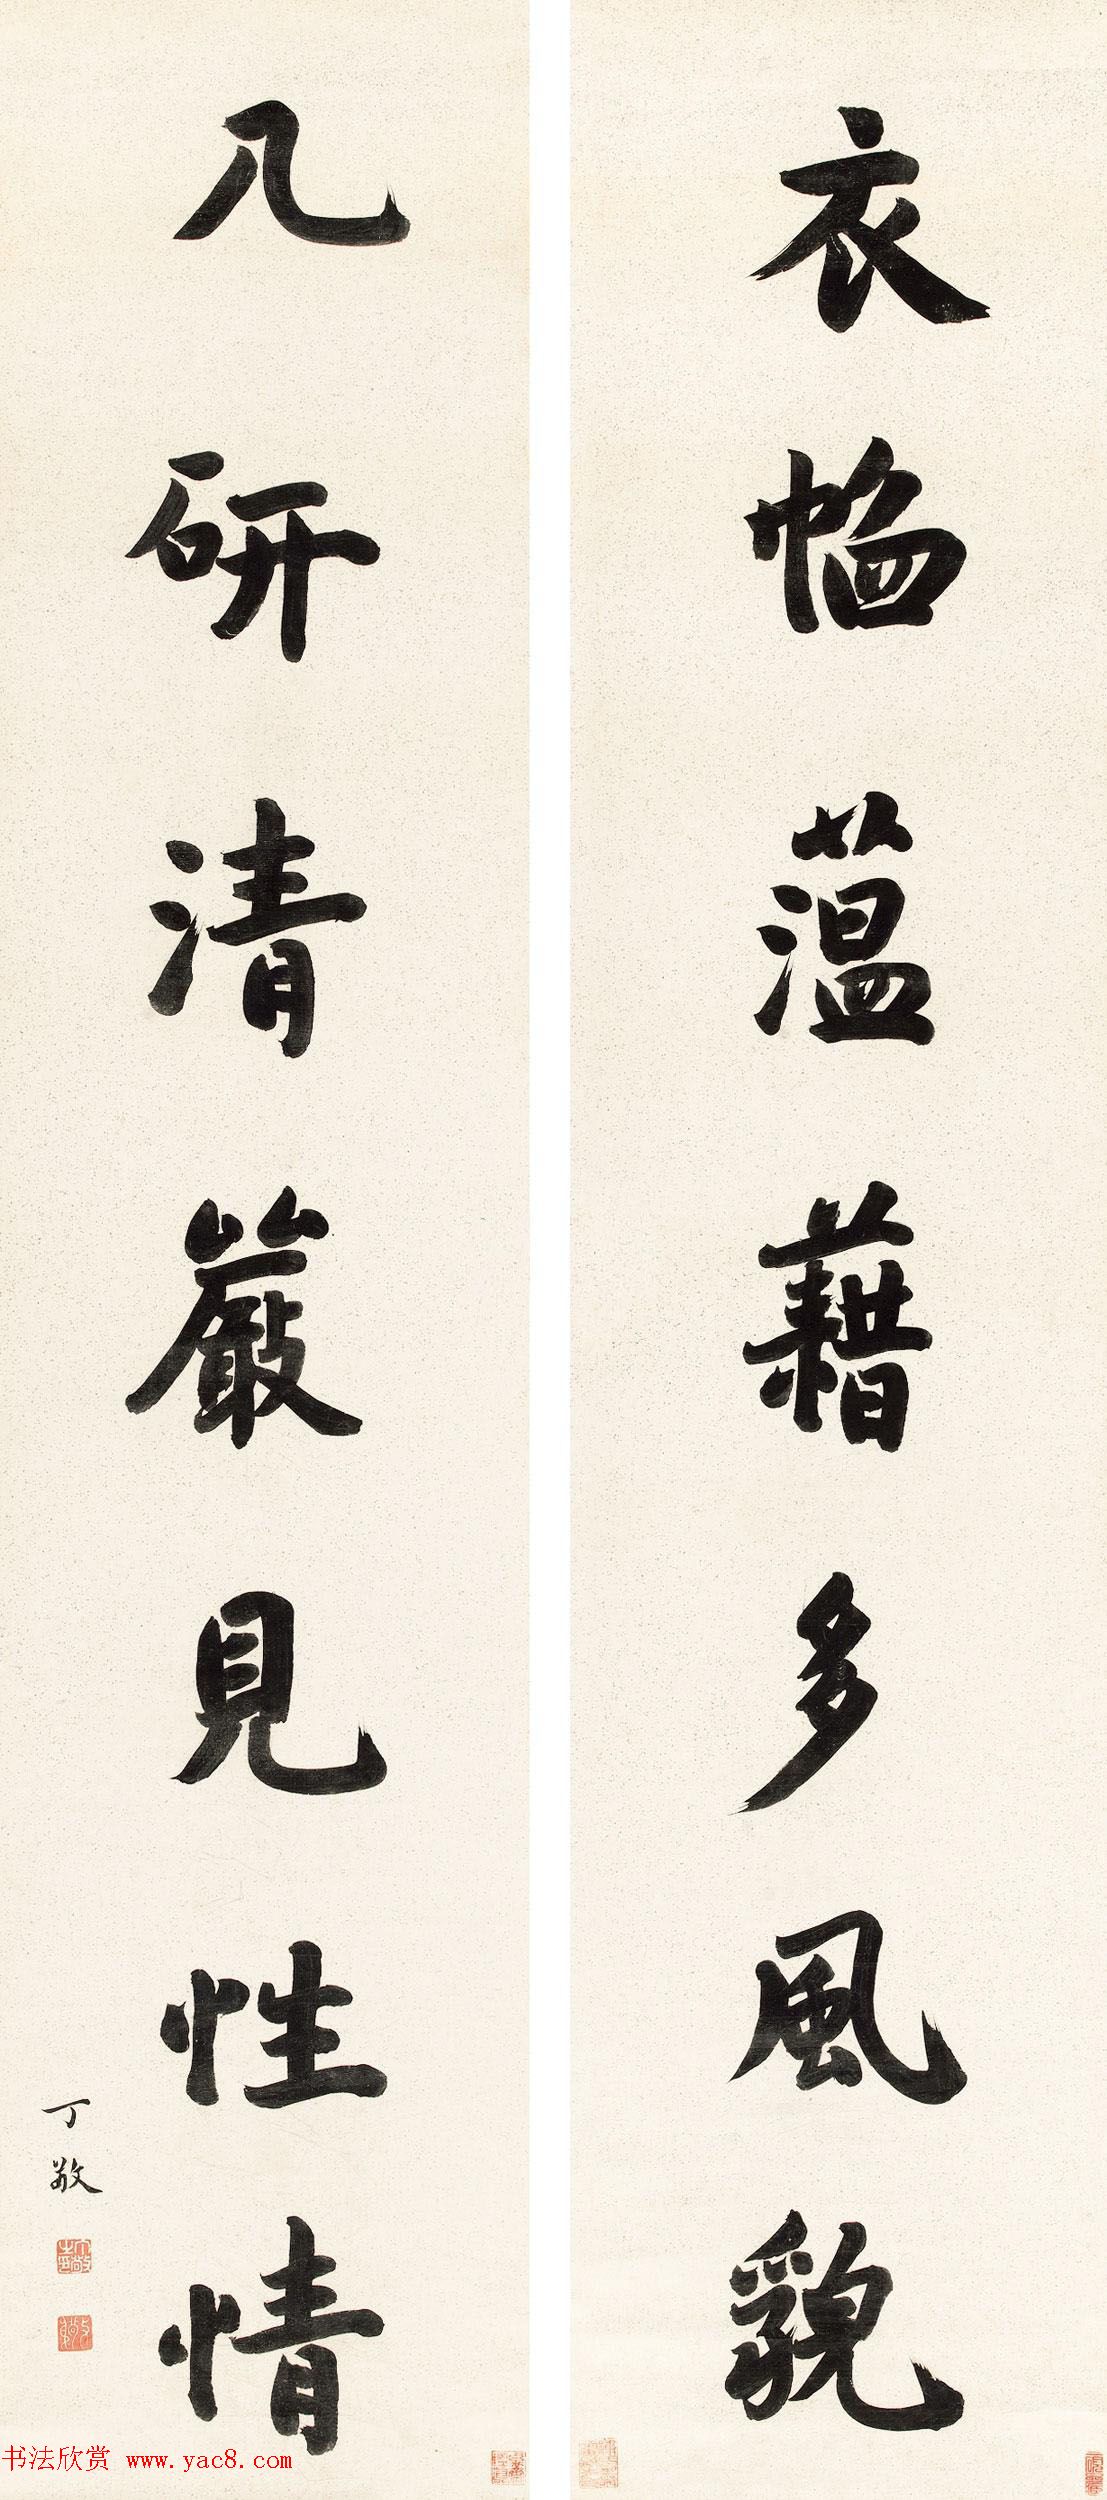 衣帢薀藉多風貌
几研清嚴見性情
丁敬
书法欣赏 www.yac8.com